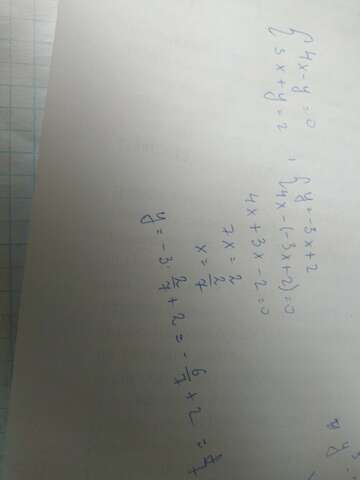 { 4x - y = 0 , { y = -3x + 2
{ 3x + y = 2 { 4x - (-3x + 2) = 0
4x + 3x - 2 = 0
7x = 2
x = 2/7
y = -3 · 2/7 + 2 = -6/7 + 2 =